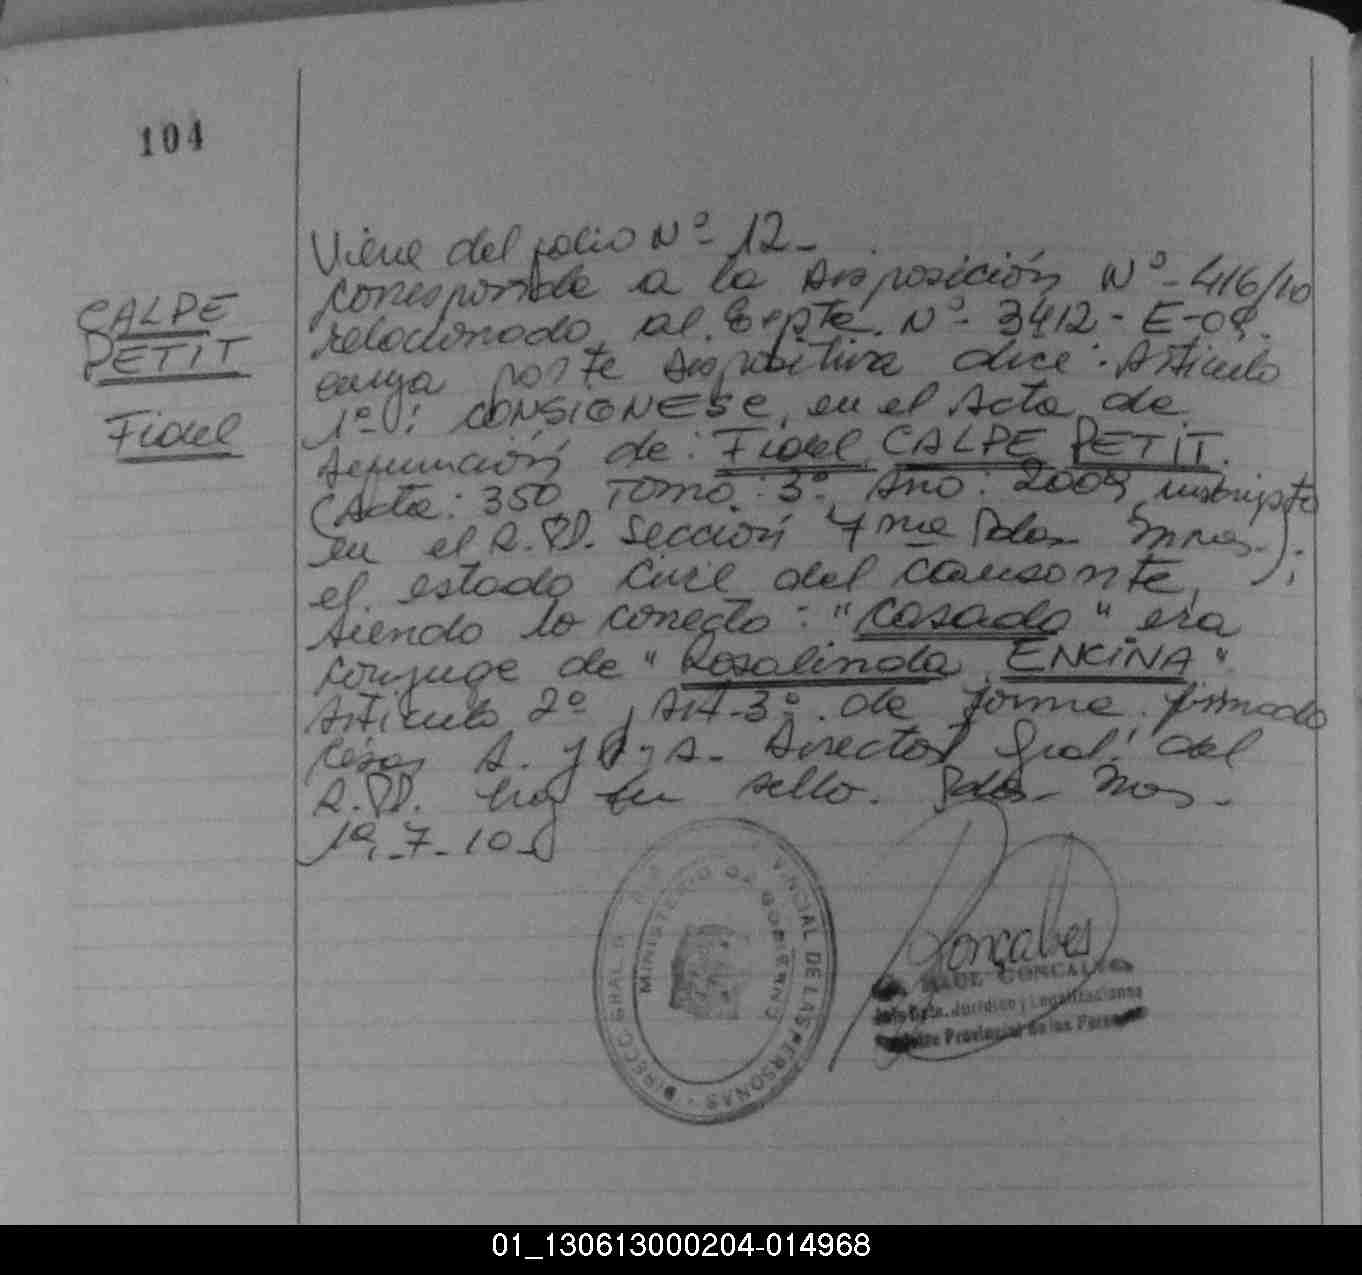 104
CALPE
PETIT
Fidel
Viene del folio Nº 12_
corresponde a la Disposición Nº 416/10
relacionado al Expte. Nº 3412 - E-09.
cuya parte dispositiva dice: Artículo
1º: CONSIGNESE, en el Acta de
defunción de: Fidel CALPE PETIT.
(Acta: 350 Tomo: 3º Año: 2009 inscripta
en el R.PP. Sección 4ma Pdas Mnes.);
el estado civil del causante,
siendo lo correcto: "Casado" era
conyuge de "Rosalinda ENCINA"
Artículo 2º, Art. 3º. de forma. firmado
César A. Director Gral. del
R.PP. hay un sello. Pdas- Mnes-
19-7-10
DIRECC. GRAL. VINCIAL DE LAS PERSONAS
MINISTERIO DE GOBIERNO
Goncalves
RAUL GONCALVES
Jefe Dpto. Jurídico y Legalizaciones
Registro Provincial de las Personas
01_130613000204-014968